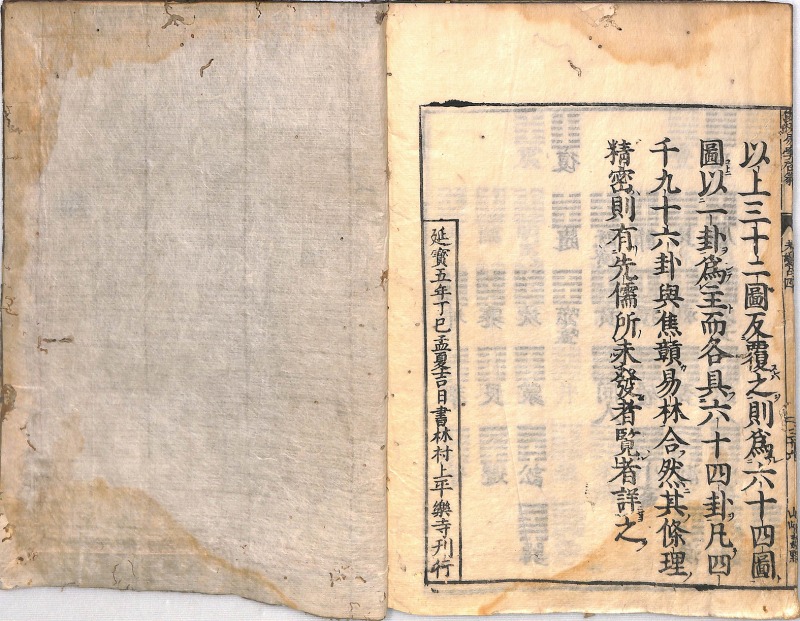 以上三十二圖反覆之則爲六十四圖
圖以一卦爲主而各具六十四卦凡四
千九十六卦與焦贛易林合然其條理
精密則有先儒所未發者覽者詳之
延寶五年丁巳孟夏吉日書林村上平樂寺刊行